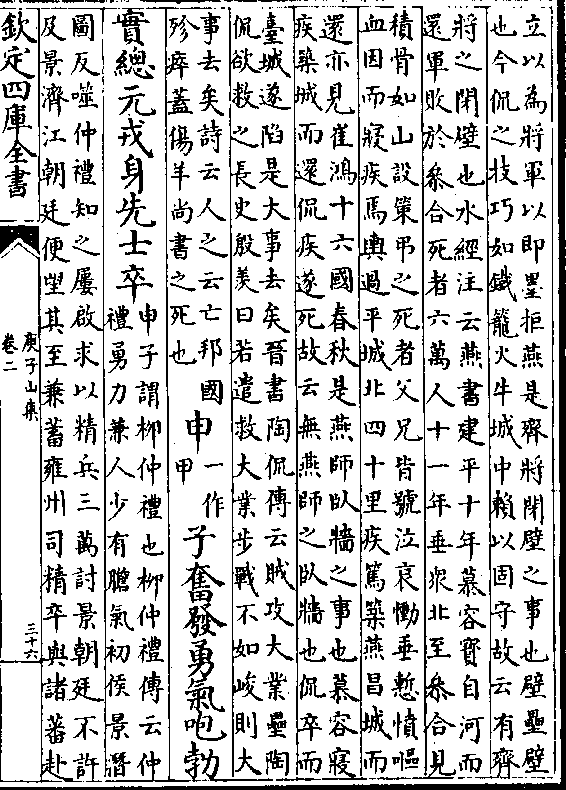 立以為將軍以即墨拒燕是齊將閉壁之事也壁壘壁
也今侃之技巧如鐵籠火牛城中賴以固守故云有齊
將之閉壁也水經注云燕書建平十年慕容寳自河而
還軍敗於叅合死者六萬人十一年垂衆北至叅合見
積骨如山設策弔之死者父兄皆號泣哀慟垂慙憤嘔
血因而寢疾馬輿過平城北四十里疾篤築燕昌城而
還亦見崔鴻十六國春秋是燕師卧牆之事也慕容寢
疾築城而還侃疾遂死故云無燕師之卧牆也侃卒而
臺城遂陷是大事去矣晉書陶侃傳云賊攻大業壘陶
侃欲救之長史殷羨曰若遣救大業步戰不如峻則大
事去矣詩云人之云亡邦國
殄瘁蓋傷羊尚書之死也
申
一作
甲
子奮發勇氣咆勃
實總元戎身先士卒
申子謂柳仲禮也柳仲禮傳云仲
禮勇力兼人少有膽氣初侯景潛
圖反噬仲禮知之屢啟求以精兵三萬討景朝廷不許
及景濟江朝廷便望其至兼蓄雍州司精卒與諸蕃赴
欽定四庫全書
庾子山集
卷二
三十六